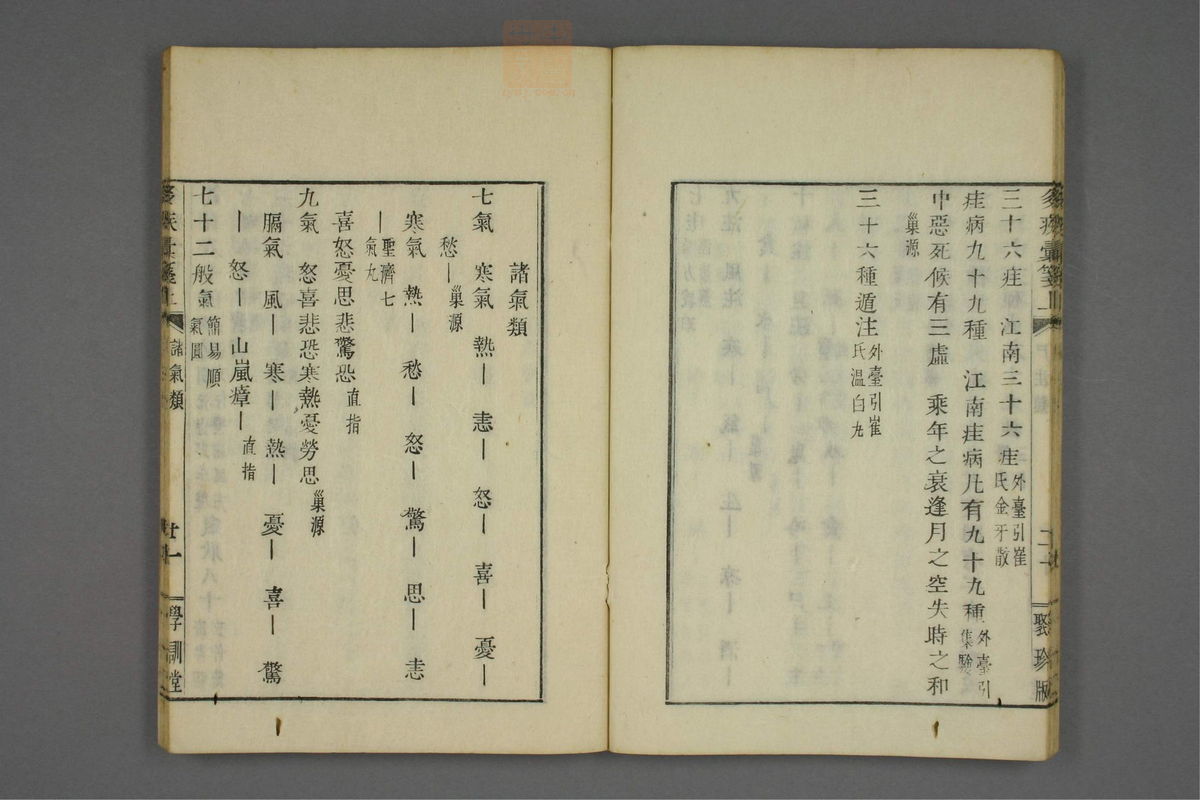 三十六疰　江南三十六疰外臺引崔氏金牙散
疰病九十九種　江南疰病凡有九十九種外臺引集驗
中惡死候有三虛　乘年之衰逢月之空失時之和
巢源
三十六種遁注外臺引崔氏溫白丸
聚珍版
諸氣類
七氣　寒氣　熱｜　恚｜　怒｜　喜｜　憂｜
愁｜巢源
寒氣　熱｜　愁｜　怒｜　驚｜　思｜　恚
｜聖濟七氣丸
喜怒憂思悲驚恐直指
九氣　怒喜悲恐寒熱憂勞思巢源
膈氣　風｜　寒｜　熱｜　憂｜　喜｜　驚
｜　怒｜　山嵐瘴｜直指
七十二般氣簡易順氣圓
諸氣類
廿一
學訓堂